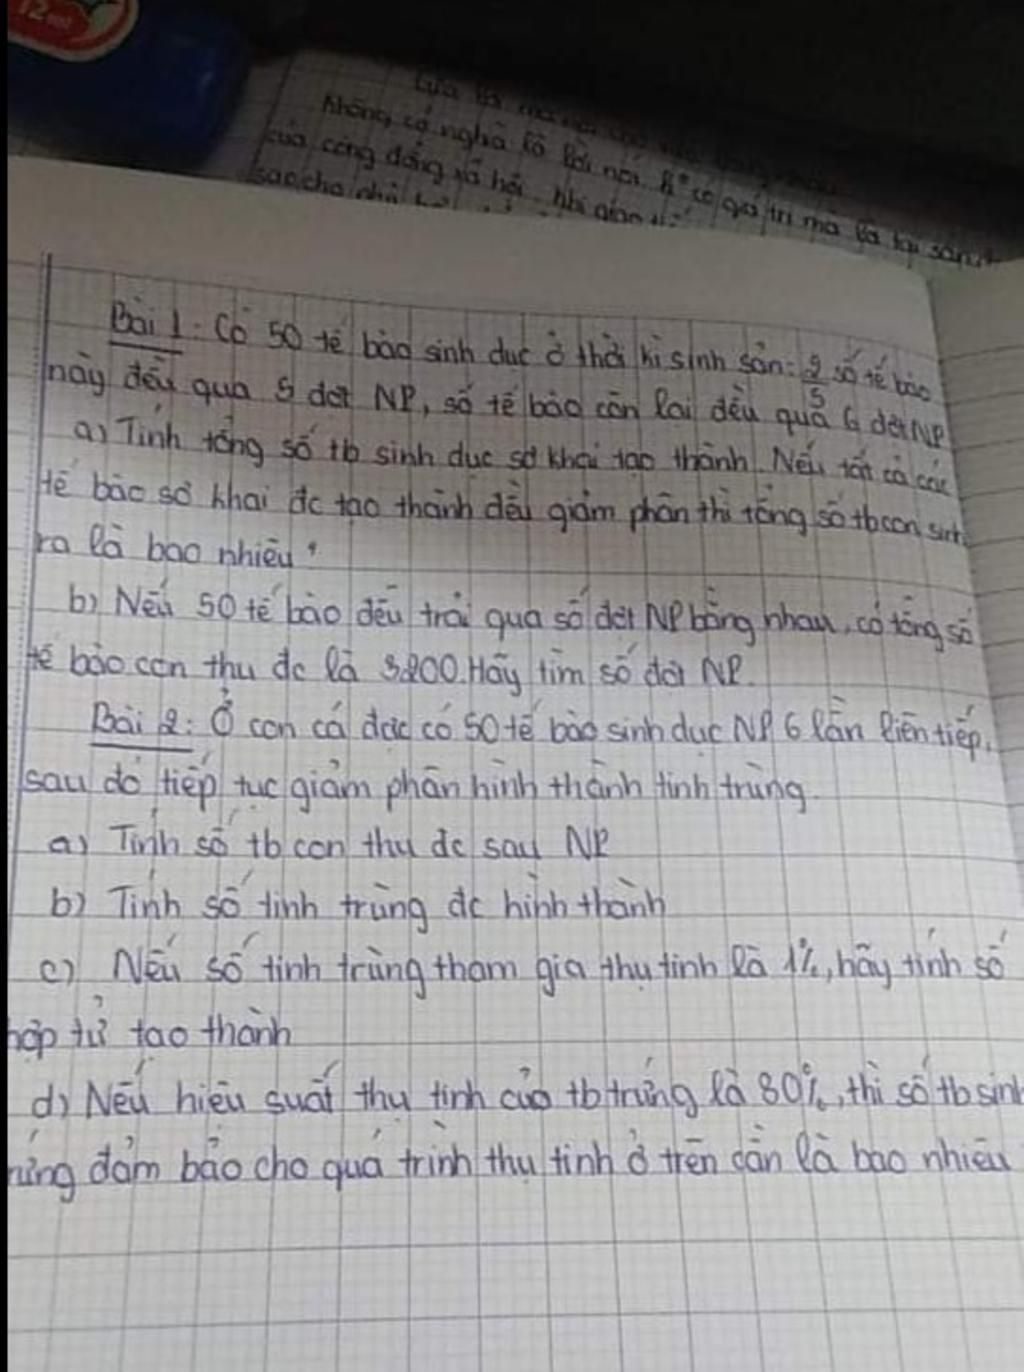 12
không có nghĩa là lời nói k° có giá trị mà là tài sản
của cộng đồng xã hội
sao cho
Bài 1: Có 50 tế bào sinh dục ở thời kì sinh sản: 2/5 số tế bào
này đều qua 5 đợt NP, số tế bào còn lại đều qua 6 đợt NP
a) Tính tổng số tb sinh dục sơ khai tạo thành. Nếu tất cả các
tế bào sơ khai đc tạo thành đều giảm phân thì tổng số tb con sinh
ra là bao nhiêu?
b) Nếu 50 tế bào đều trải qua số đợt NP bằng nhau, có tổng số
tế bào con thu đc là 3200. Hãy tìm số đợt NP.
Bài 2: Ở con cá đực có 50 tế bào sinh dục NP 6 lần liên tiếp,
sau đó tiếp tục giảm phân hình thành tinh trùng.
a) Tính số tb con thu đc sau NP
b) Tính số tinh trùng đc hình thành
c) Nếu số tinh trùng tham gia thụ tinh là 1%, hãy tính số
hợp tử tạo thành
d) Nếu hiệu suất thụ tinh của tb trứng là 80%, thì số tb sinh
trứng đảm bảo cho quá trình thụ tinh ở trên cần là bao nhiêu